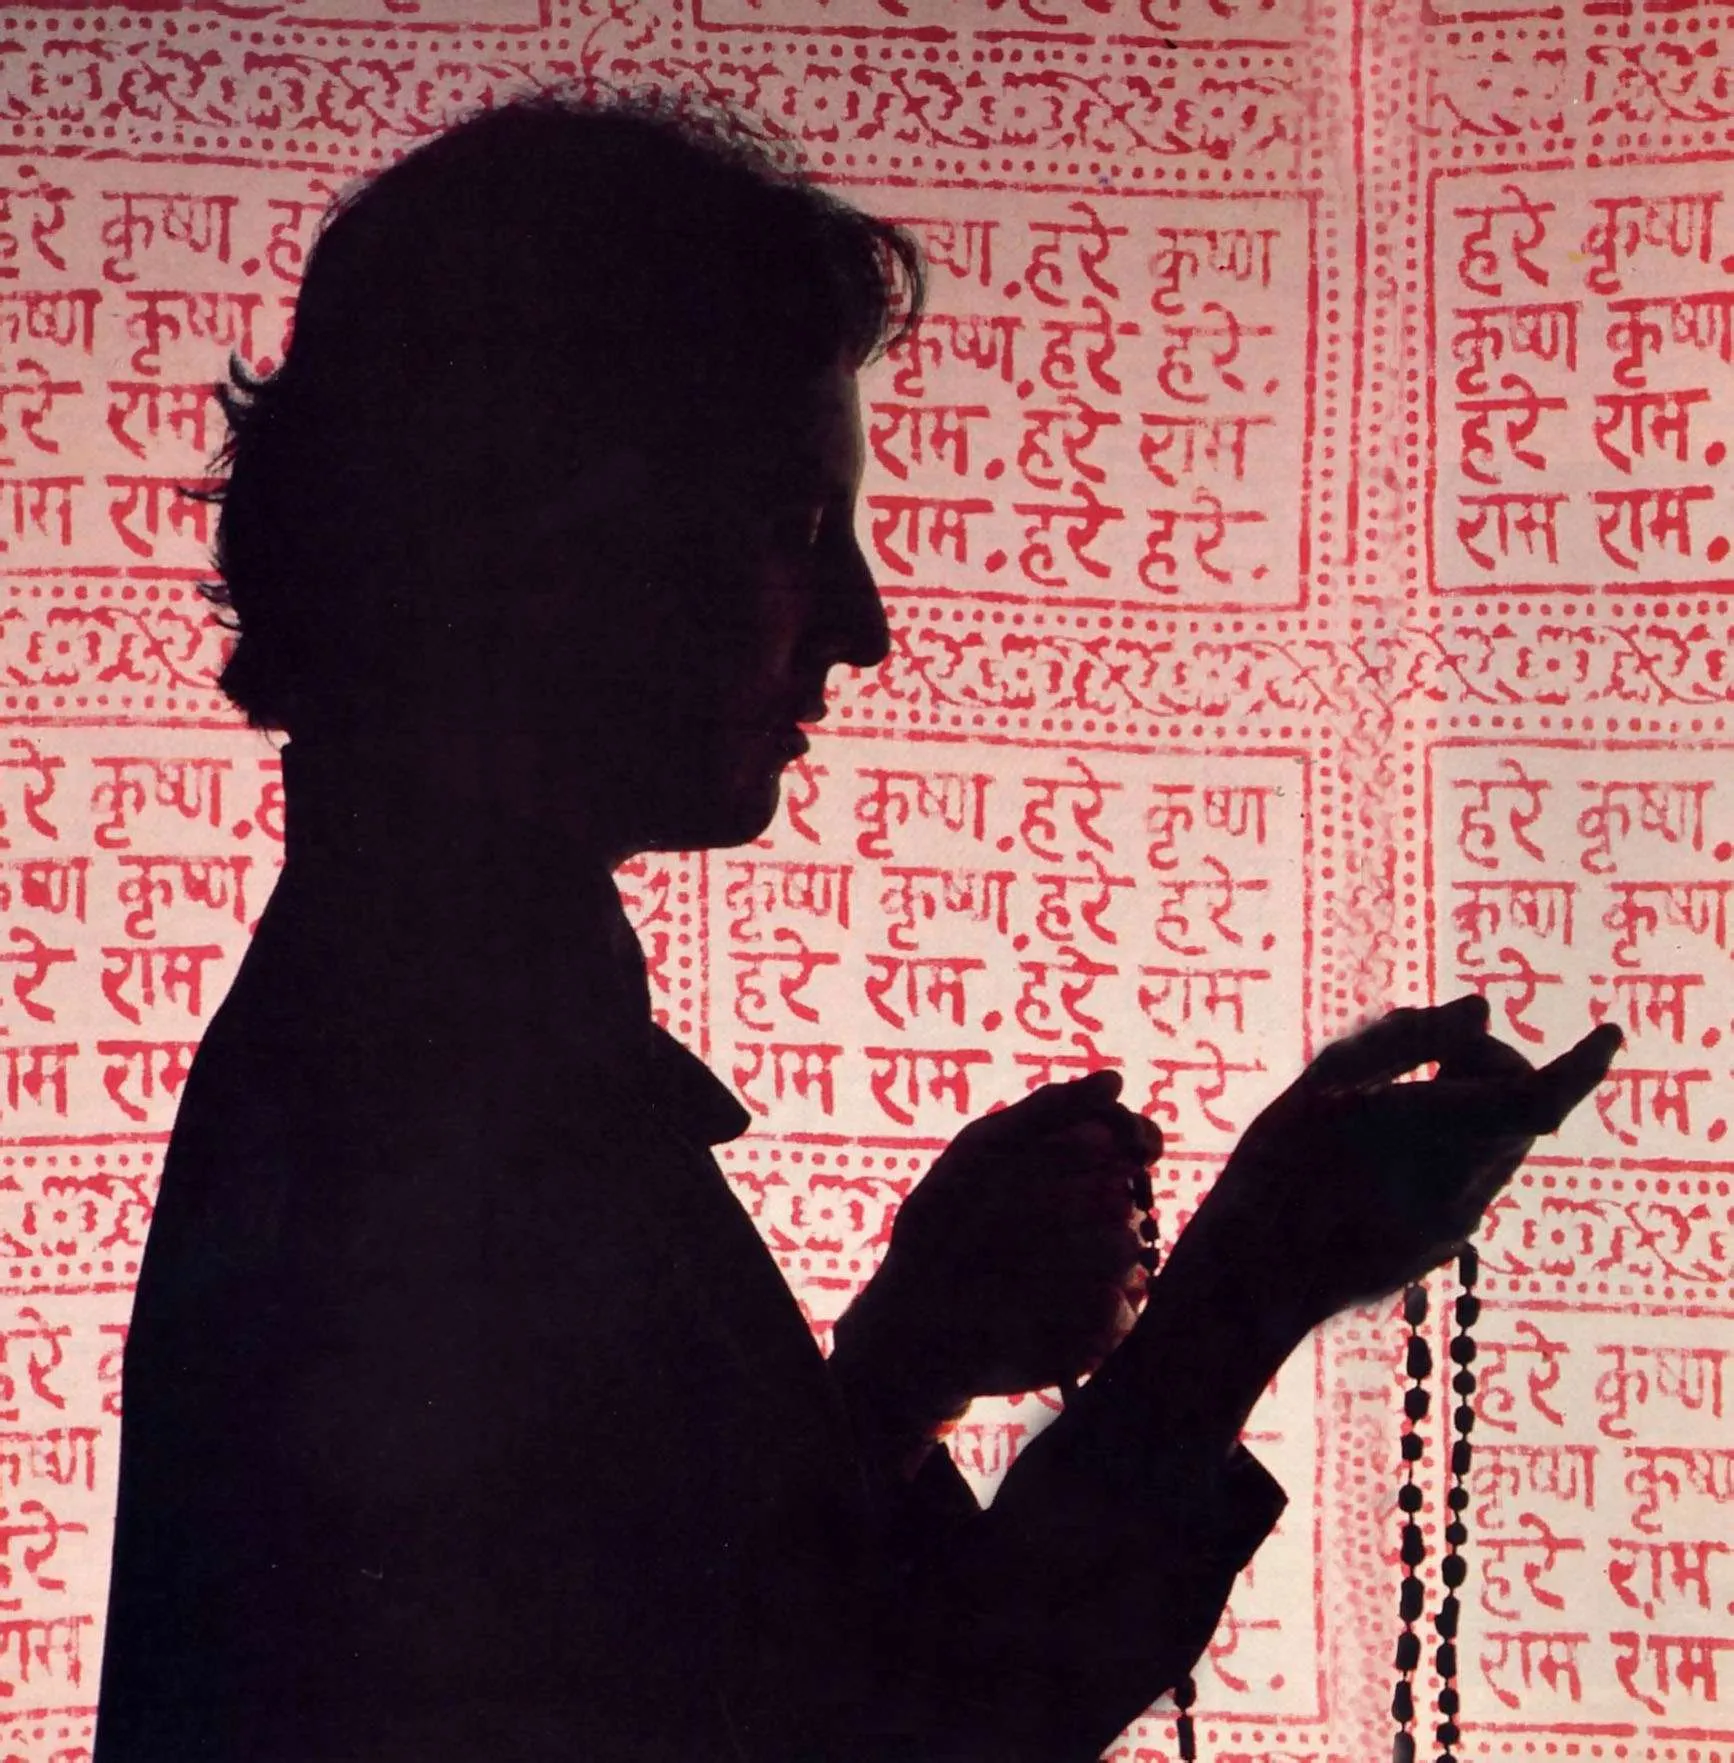 हरे कृष्ण.
कृष्ण कृष्ण.
हरे राम
राम राम
कृष्ण.हरे कृष्ण
कृष्ण.हरे हरे.
राम.हरे राम
राम.हरे हरे.
हरे कृष्ण.
कृष्ण कृष्ण
हरे राम.
राम राम.
हरे कृष्ण.
कृष्ण कृष्ण.
हरे राम
राम राम
हरे कृष्ण.हरे कृष्ण
कृष्ण कृष्ण.हरे हरे.
हरे राम.हरे राम
राम राम.हरे हरे
हरे कृष्ण.
कृष्ण कृष्ण
हरे राम.
राम.
हरे
कृष्ण
हरे
राम
हरे कृष्ण
कृष्ण कृष्ण
हरे राम
राम राम